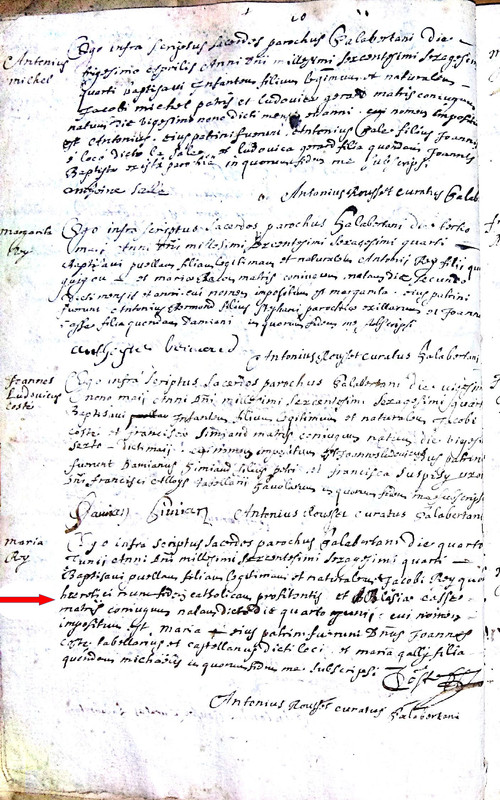 Antonius
michel
Ego infra scriptus sacerdos parochus Salabertani die
trigesimo aprilis Anni Dñi millesimi sexcentesimi sexagesimi
quarti Baptisavi Infantem filium legitimum et naturalem
Jacobi michel patris et Ludovica gorad matris coniugum
natum die vigesimo nono dicti mensis et anni cui nomen impositum
est Antonius eius patrini fuerunt Antonius Sale filius Joannis
loco dicto la Sale et Ludovica gorad filia quondam Joannis
Baptista ex ista parochia in quorum fidem me subscripsi
Antoine Sale
Antonius Rousset curatus Salab
margarita
Rey
Ego infra scriptus sacerdos parochus Salabertani die
maij Anni Dñi millesimi sexcentesimi sexagesimi quarti
Baptisavi puellam filiam legitimam et naturalem Antonij Rey filij
et maria matris coniugum natam die secundo
dicti mensis et anni cui nomen impositum est margarita eius patrini
fuerunt Antonius filius Stephani parochia exillarum et Joanna
Casse filia quondam Damiani in quorum fidem me subscripsi
Antonius Rousset curatus Salabertani
Joannes
Ludovicus
Coste
Ego infra scriptus sacerdos parochus Salabertani die vigesimo
nono maij Anni Dñi millesimi sexcentesimi sexagesimi quarti
Baptisavi Infantem filium legitimum et naturalem Jacobi
Coste et francisca Simiand matris coniugum natum die vigesimo
sexto dicti maij cui nomen impositum est Joannes Ludovicus eius patrini
fuerunt Damianus Simiand filius petri et francisca
Dñi francisci in quorum fidem me subscripsi
Damian Simian Antonius Rousset curatus Salabertani
maria
Rey
Ego infra scriptus sacerdos parochus Salabertani die quarto
Junij Anni Dñi millesimi sexcentesimi sexagesimi quarti
Baptisavi puellam filiam legitimam et naturalem Jacobi Rey
heretici nunc fidem catholicam profitentis et Blasia Casse
matris coniugum natam dicto die quarto Junij cui nomen
impositum est maria eius patrini fuerunt Dñus Joannes
Coste tabellarius et castellanus dicti loci et maria gally filia
quondam michaelis in quorum fidem me subscripsi Coste
Antonius Rousset curatus Salabertani